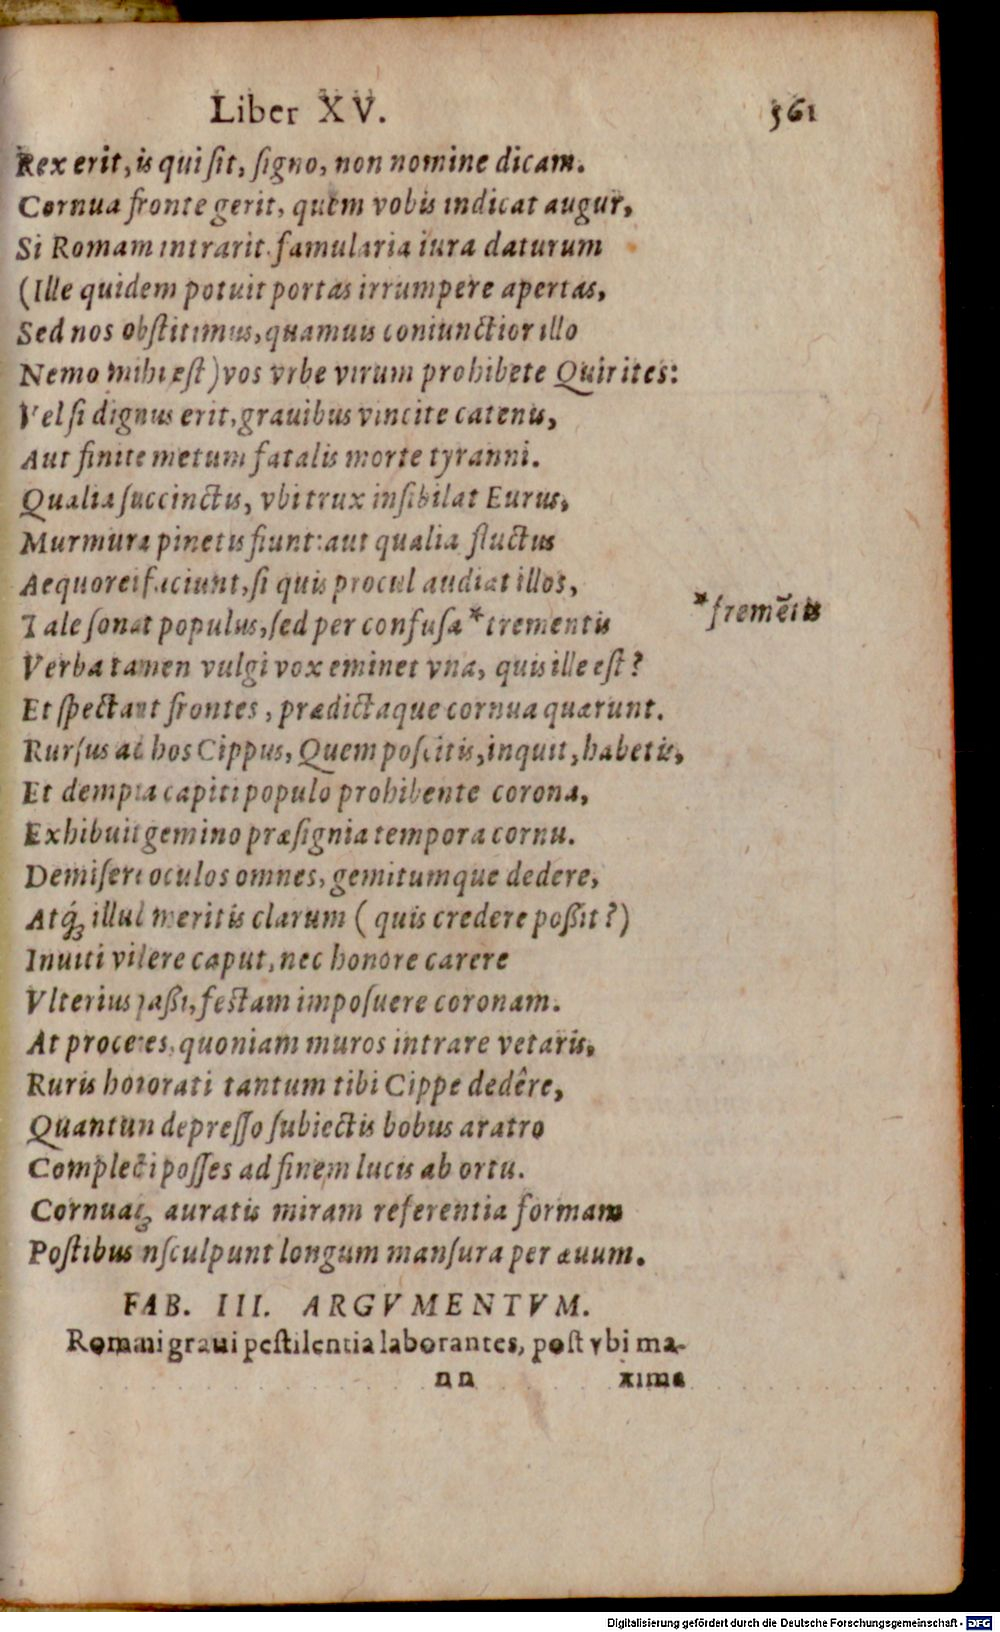 Liber XV. 561
Rex erit, is qui sit, signo, non nomine dicam.
Cornua fronte gerit, quem vobis indicat augur,
Si Romam intrarit famularia iura daturum
(Ille quidem potuit portas irrumpere apertas,
Sed nos obstitimus, quamuis coniunctior illo
Nemo mihi est) vos vrbe virum prohibete Quirites:
Vel si dignus erit, grauibus vincite catenis,
Aut finite metum fatalis morte tyranni.
Qualia succinctis, vbi trux insibilat Eurus,
Murmura pinetis fiunt: aut qualia fluctus
Aequorei faciunt, si quis procul audiat illos,
Tale sonat populus, sed per confusa *trementis
*fremẽtis
Verba tamen vulgi vox eminet vna, quis ille est?
Et spectant frontes, prædictaque cornua quærunt.
Rursus ad hos Cippus, Quem poscitis, inquit, habetis,
Et dempta capiti populo prohibente corona,
Exhibuit gemino præsignia tempora cornu.
Demisere oculos omnes, gemitumque dedere,
Atq́ꝫ illud meritis clarum (quis credere poßit?)
Inuiti videre caput, nec honore carere
Vlterius paßi, festam imposuere coronam.
At proceres, quoniam muros intrare vetaris,
Ruris honorati tantum tibi Cippe dedêre,
Quantum depresso subiectis bobus aratro
Complecti posses ad finem lucis ab ortu.
Cornuaqꝫ auratis miram referentia formam
Postibus insculpunt longum mansura per æuum.
FAB. III. ARGVMENTVM.
Romani graui pestilentia laborantes, post vbi ma-
nn xima
Digitalisierung gefördert durch die Deutsche Forschungsgemeinschaft - DFG